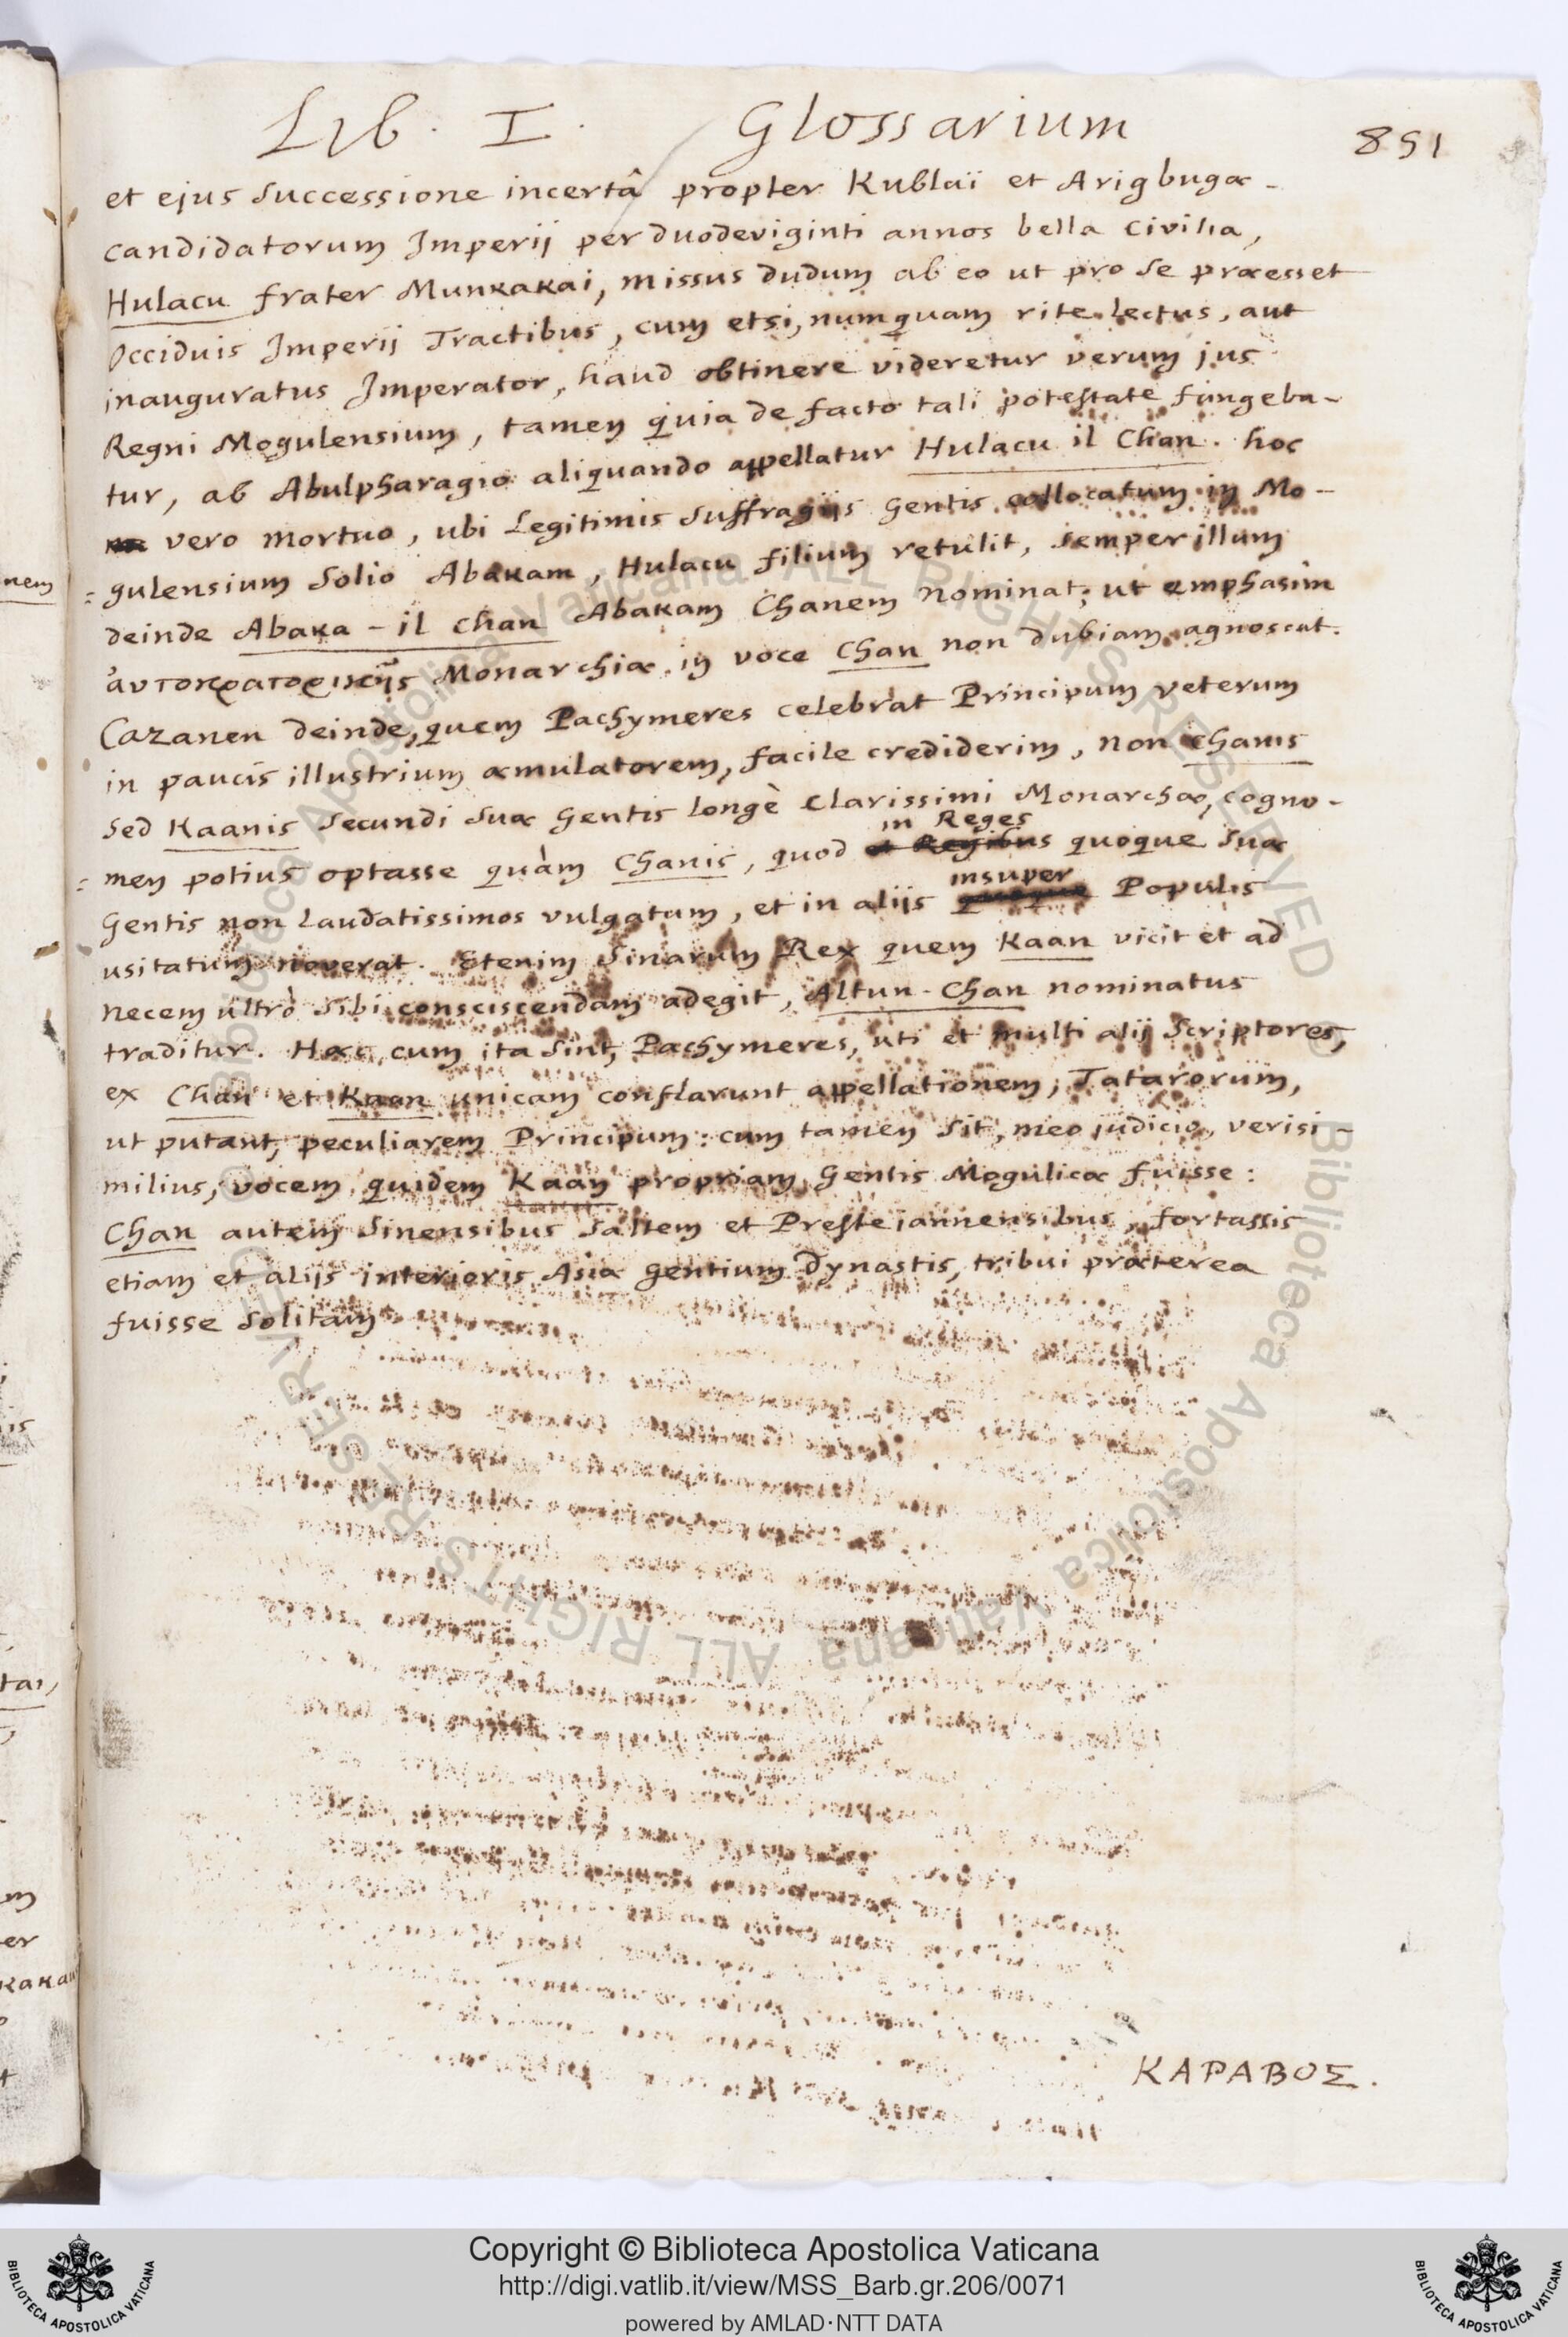 Lib. I. Glossarium 851
et ejus successione incertâ propter Kublaï et Arigbugæ
candidatorum Imperij per duodeviginti annos bella civilia,
Hulacu frater Munkakai, missus dudum ab eo ut pro se præesset
Occiduis Imperij Tractibus, cum etsi, numquam rite lectus, aut
inauguratus Imperator, haud obtinere videretur verum jus
Regni Mogulensium, tamen quia de facto tali potestate fungeba-
tur, ab Abulpharagio aliquando appellatur Hulacu il Chan. hoc
vero mortuo, ubi legitimis suffragijs Gentis collocatum in Mo-
gulensium solio Abakam, Hulacu filium retulit, semper illum
deinde Abaka-il Chan Abakam Chanem nominat; ut emphasim
Monarchiæ in voce Chan non dubiam agnoscat.
Cazanen deinde, quem Pachymeres celebrat Principum veterum
in paucis illustrium æmulatorem, facile crediderim, non Chanis
sed Kaanis secundi suæ Gentis longè clarissimi Monarchæ, cogno-
in Reges
men potius optasse quàm Chanis, quod et Regibus quoque suæ
insuper
Gentis non laudatissimos vulgatum, et in alijs quoque Populis
usitatum noverat. Etenim Sinarum Rex quem Kaan vicit et ad
necem ultrò sibi consciscendam adegit, Altun-Chan nominatus
traditur. Hæc cum ita sint, Pachymeres, uti et multi alij scriptores,
ex Chan et Kaan unicam conflarunt appellationem, Tatarorum,
ut putant, peculiarem Principum: cum tamen sit, meo judicio, verisi-
milius, vocem quidem Kaan propriam Gentis Mogulicæ fuisse:
Chan autem Sinensibus saltem et Presteiannensibus, fortassis
etiam et alijs interioris Asiæ gentium Dynastis, tribui præterea
fuisse solitam
ΚΑΡΑΒΟΣ.
nem
is
tai,
m
er
kakan
Copyright © Biblioteca Apostolica Vaticana
http://digi.vatlib.it/view/MSS_Barb.gr.206/0071
powered by AMLAD·NTT DATA
BIBLIOTECA APOSTOLICA VATICANA
BIBLIOTECA APOSTOLICA VATICANA